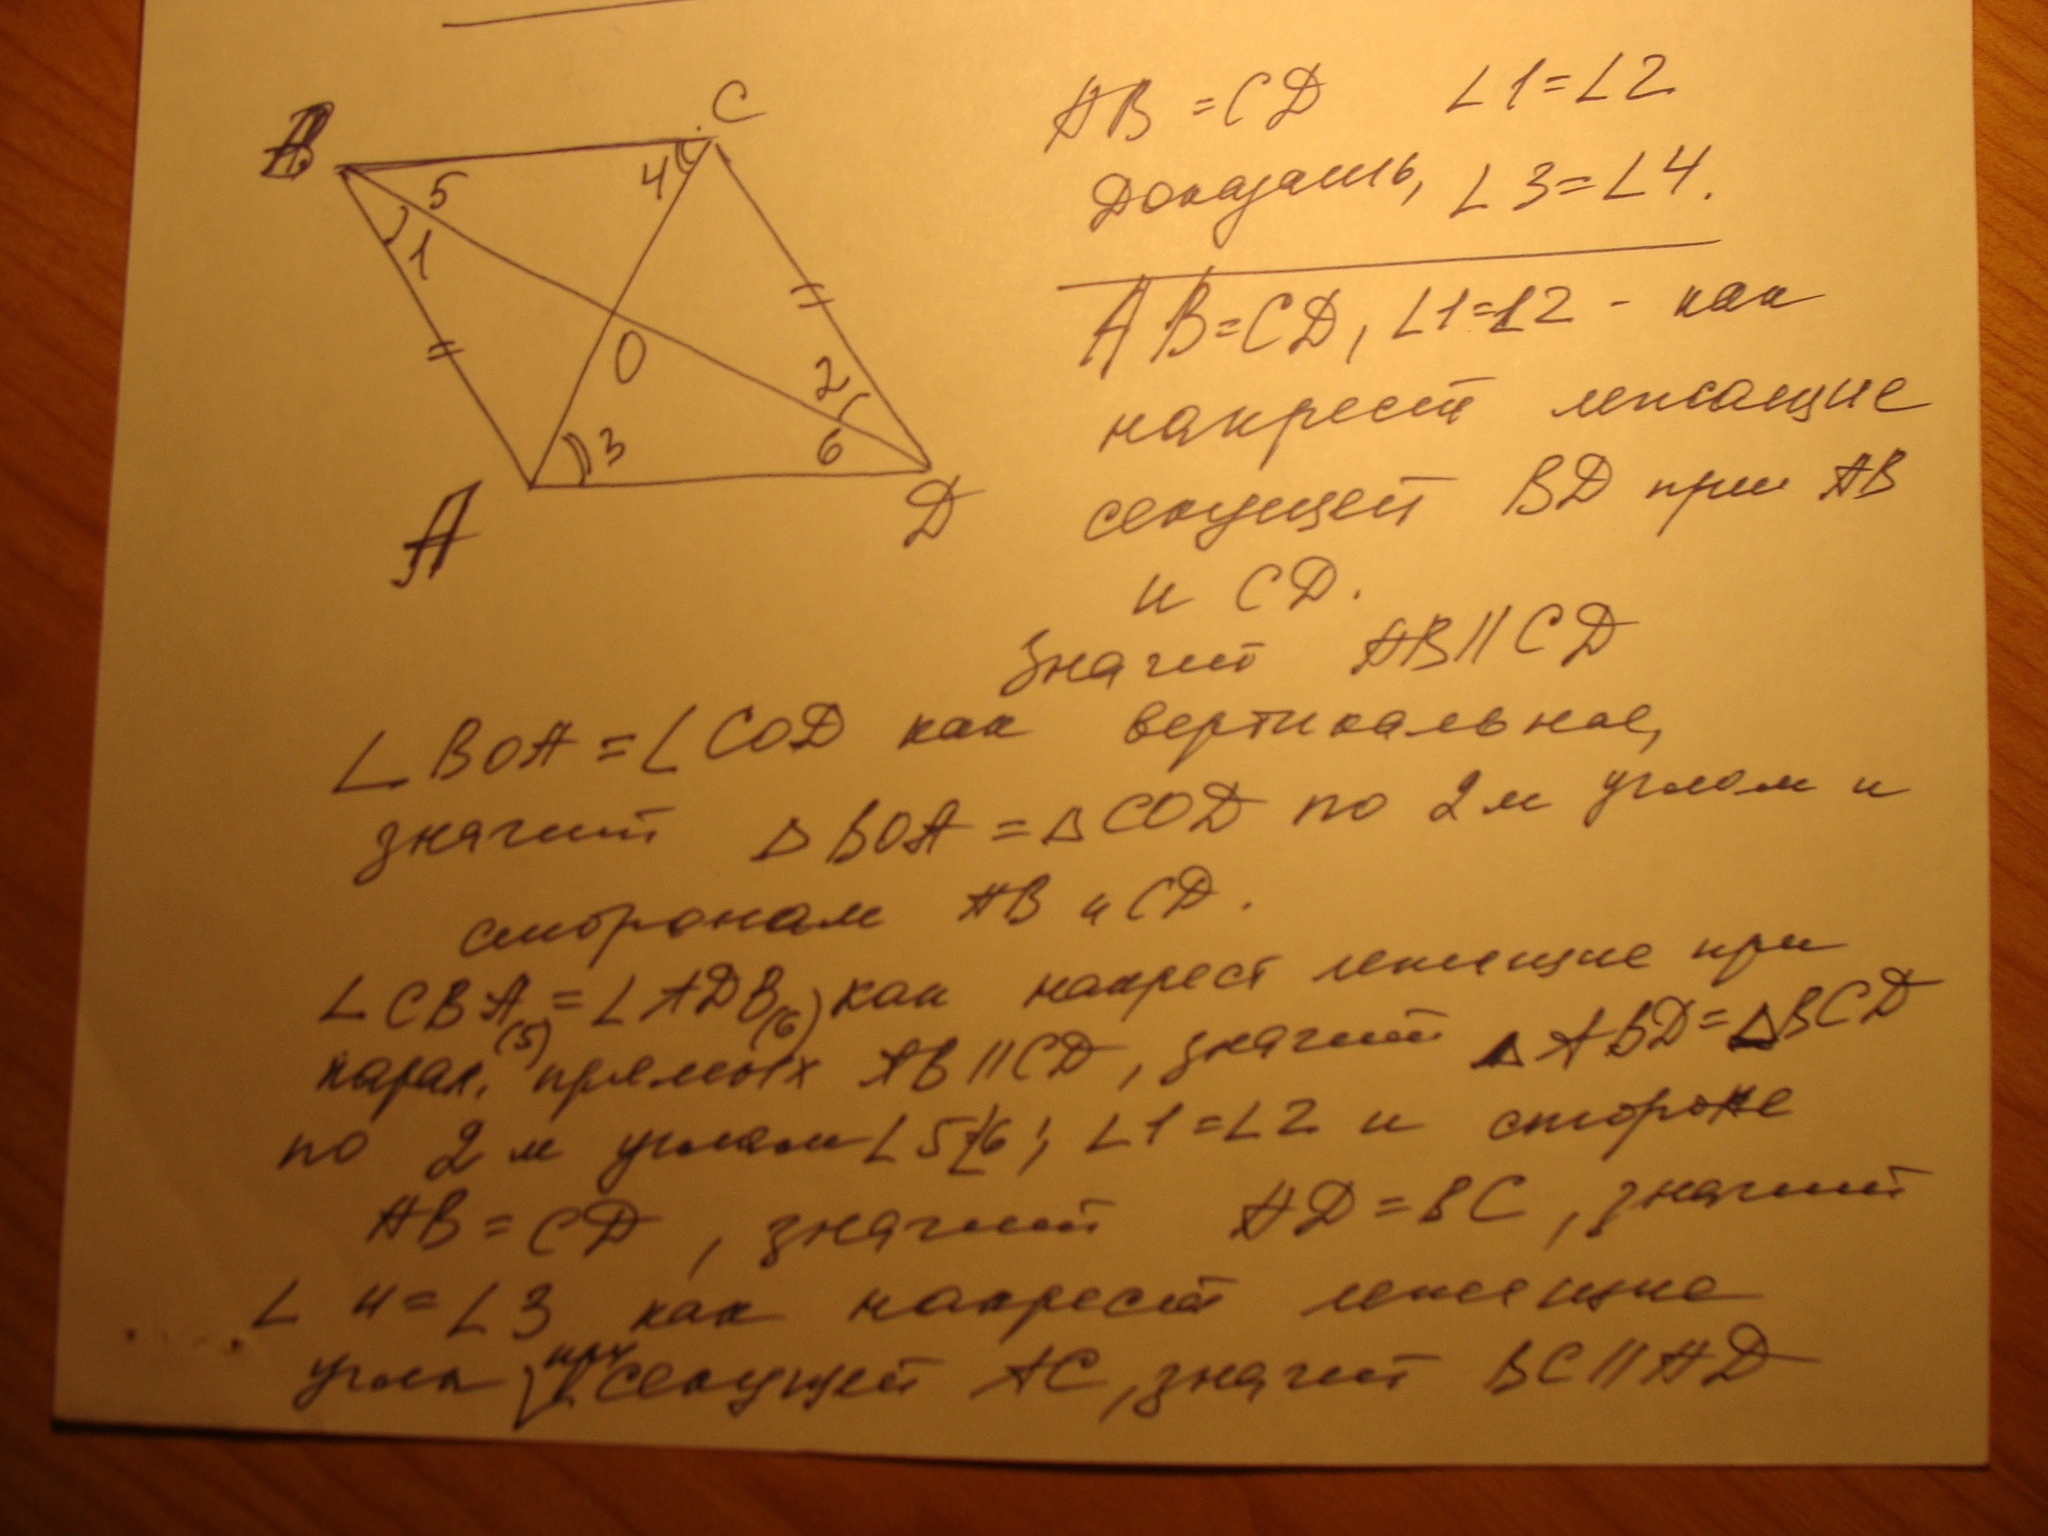 B
C
5
4
1
O
2
3
6
A
D
AB = CD L1=L2
Доказать, L3=L4.
AB=CD, L1=L2 - как
накрест лежащие
секущей BD при AB
и CD.
Значит AB||CD
L BOA = L COD как вертикальные,
значит Δ BOA = Δ COD по 2м углам и
сторонам AB и CD.
L CBA(5) = L ADB(6) как накрест лежащие при
парал. прямых AB||CD, значит Δ ABD = Δ BCD
по 2м углам L5 L6; L1=L2 и стороне
AB = CD, значит AD = BC, значит
L 4 = L3 как накрест лежащие
углы при секущей AC, значит BC||AD